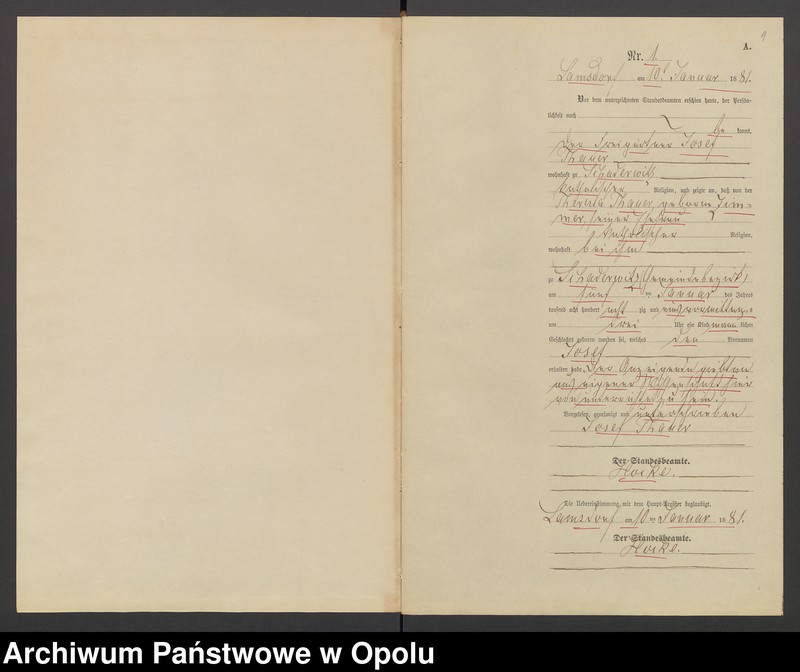 9
A.
Nr. 1
Lamsdorf am 10. Januar 1881.
Vor dem unterzeichneten Standesbeamten erschien heute, der Persön-
lichkeit nach
be kannt,
der Freigärtner Josef
Thauer
wohnhaft zu Schaderwitz
katholischer Religion, und zeigte an, daß von der
Theresia Thauer, geborne Zim-
mer, seiner Ehefrau
katholischer Religion,
wohnhaft bei ihm
zu Schaderwitz, Gemeindebezirk,
am fünf ten Januar des Jahres
tausend acht hundert acht zig und eins vormittags
um drei Uhr ein Kind männ lichen
Geschlechts geboren worden sei, welches den Vornamen
Josef
erhalten habe. Der Anzeigende
aus eigener Wissenschaft hier
von unterrichtet zu sein.
Vorgelesen, genehmigt und unterschrieben
Josef Thauer
Der Standesbeamte.
Hocke.
Die Uebereinstimmung mit dem Haupt-Register beglaubigt.
Lamsdorf am 10 ten Januar 1881.
Der Standesbeamte.
Hocke.
Archiwum Państwowe w Opolu